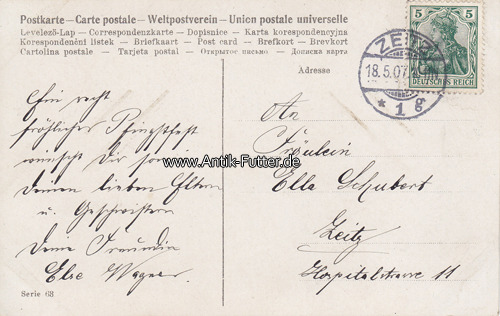 Postkarte — Carte postale — Weltpostverein — Union postale universelle
Levelező-Lap — Correspondenzkarte — Dopisnice — Karta korespondencyjna
Korespondenční lístek — Briefkaart — Post card — Brefkort — Brevkort
Cartolina postale — Tarjeta postal — Открытое письмо — Дописна карта
Adresse
5 5
DEUTSCHES REICH
ZEITZ
18.5.07
* 1 g
Ein recht
fröhliches Pfingstfest
wünscht Dir sowie
Deinen lieben Eltern
u. Geschwistern
Deine Freundin
Else Wagner.
An
Fräulein
Ella Schubert
Zeitz
Hospitalstrasse 11
www.Antik-Futter.de
Serie 63